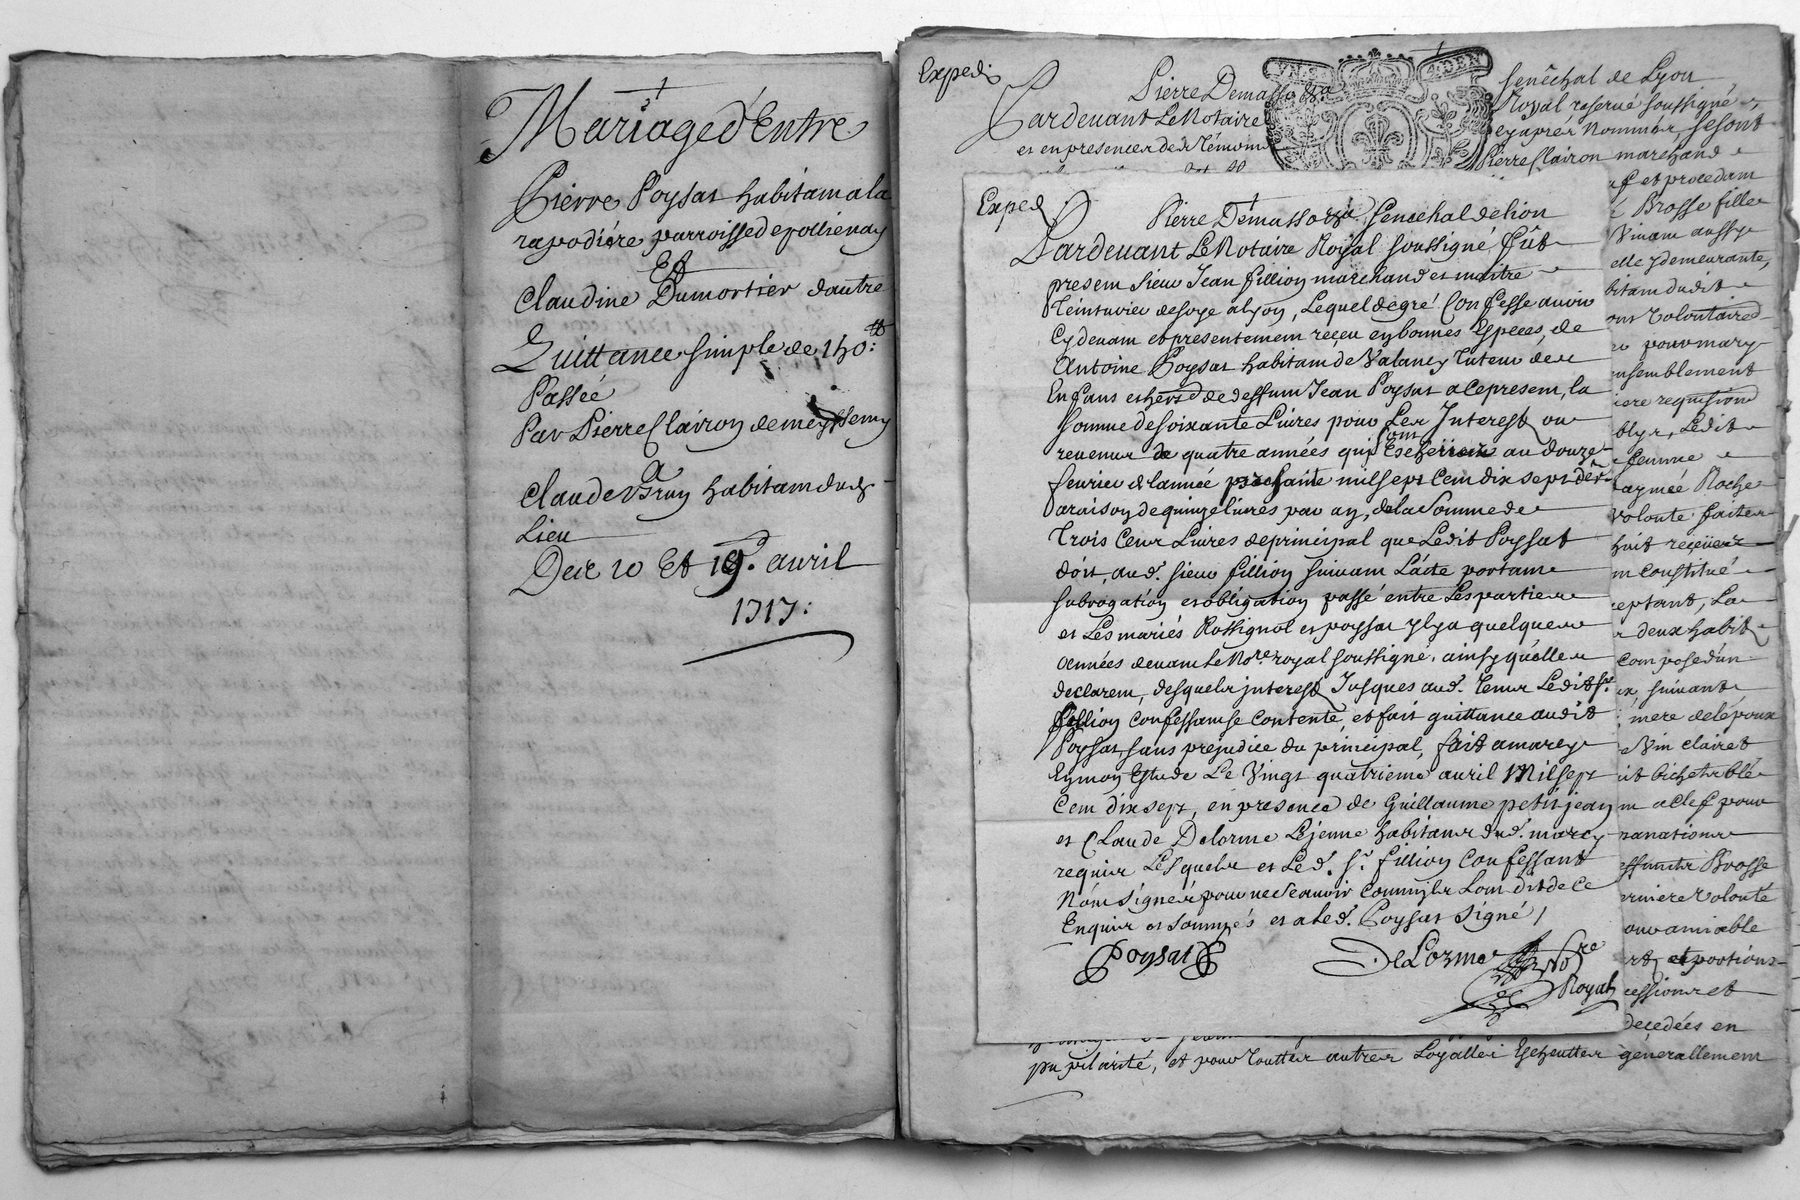 Mariage d'Entre
Pierre Poysat habitam a la
rapodiére parroisse de pollienay
Et
Claudine Dumortier dautre
Quittance simple de 140:tt
Passée
Par Pierre Clairon de meyssemy
a
Claude Bruy habitam dud
Lieu
Des 10 Et 19. avril
1717:
Exped.
Pierre Demasso Senêchal de Lyon
Pardevant Le Notaire Royal reservé soussigné
et en presence des Témoins cy aprés Nommés, se sont
Pierre Clairon marchand
et procedam
Brosse fille
Vivam aussy
elle y demeurante,
bitam dudit
ont Volontaired
pour mary
nsemblement
iere requisiond
blyr, Ledit
femme
aymeé Roche
volonté faite
huit reçeüe
m constitué
ceptant, La
deux habit
composé d'un
ex, suivant
mere de lépoux
Vin clairet
it bichets blé
m a clef pour
nations
effunte Brosse
erniere volonté
our amiable
et portions
cessions et
decedées en
pupilarité, et pour toutes autres Loyalles Escheuttes génerallement
Exped.
Pierre Démasso Senechal de lion
Pardevant Le Notaire Royal soussigné fût
presem sieur Jean fillion marchand et maitre
Teinturier de soye a lyon, Lequel de gré Confesse avoir
Cy devam et presentemem reçeu en bonnes Especes, de
Antoine Poysat habitam de Valancy tuteur des
Enfans et hers de deffum Jean Poysat a ce presem, la
somme de soixante Livres pour Les Interest ou
revenus de quatre années qui sont Escheües au douze
fevrier de lannée presante mil sept Cem dix sept der
a raison de quinze livres par an, de la Somme de
Trois Cems Livres de principal que Ledit Poysat
doit, aud. sieur fillion suivam L'acte portam
subrogation et obligation passé entre Les parties
et Les mariés Rossignol et poysat y lya quelques
années devam Le Nore. royal soussigné, ainsy quélles
declarem, desquels interest Jusques aud. tems Ledit sr.
fillion confessam se contente, et fait quittance audit
Poysat, sans prejudice du principal, fait a marcy
En mon Estude Le Vingt quatrieme avril Mil sept
Cem dix sept, en presence de Guillaume petit jean
et Claude Delorme Lejeune habitans dud. marcy
requis Lesquels et Le d. sr. fillion Confessant
N'ont signés pour ne scavoir comm'ils L'ont dit de ce
Enquis et sommés et a led. Poysat signé /
Poysat
DeLorme Nore
Royal